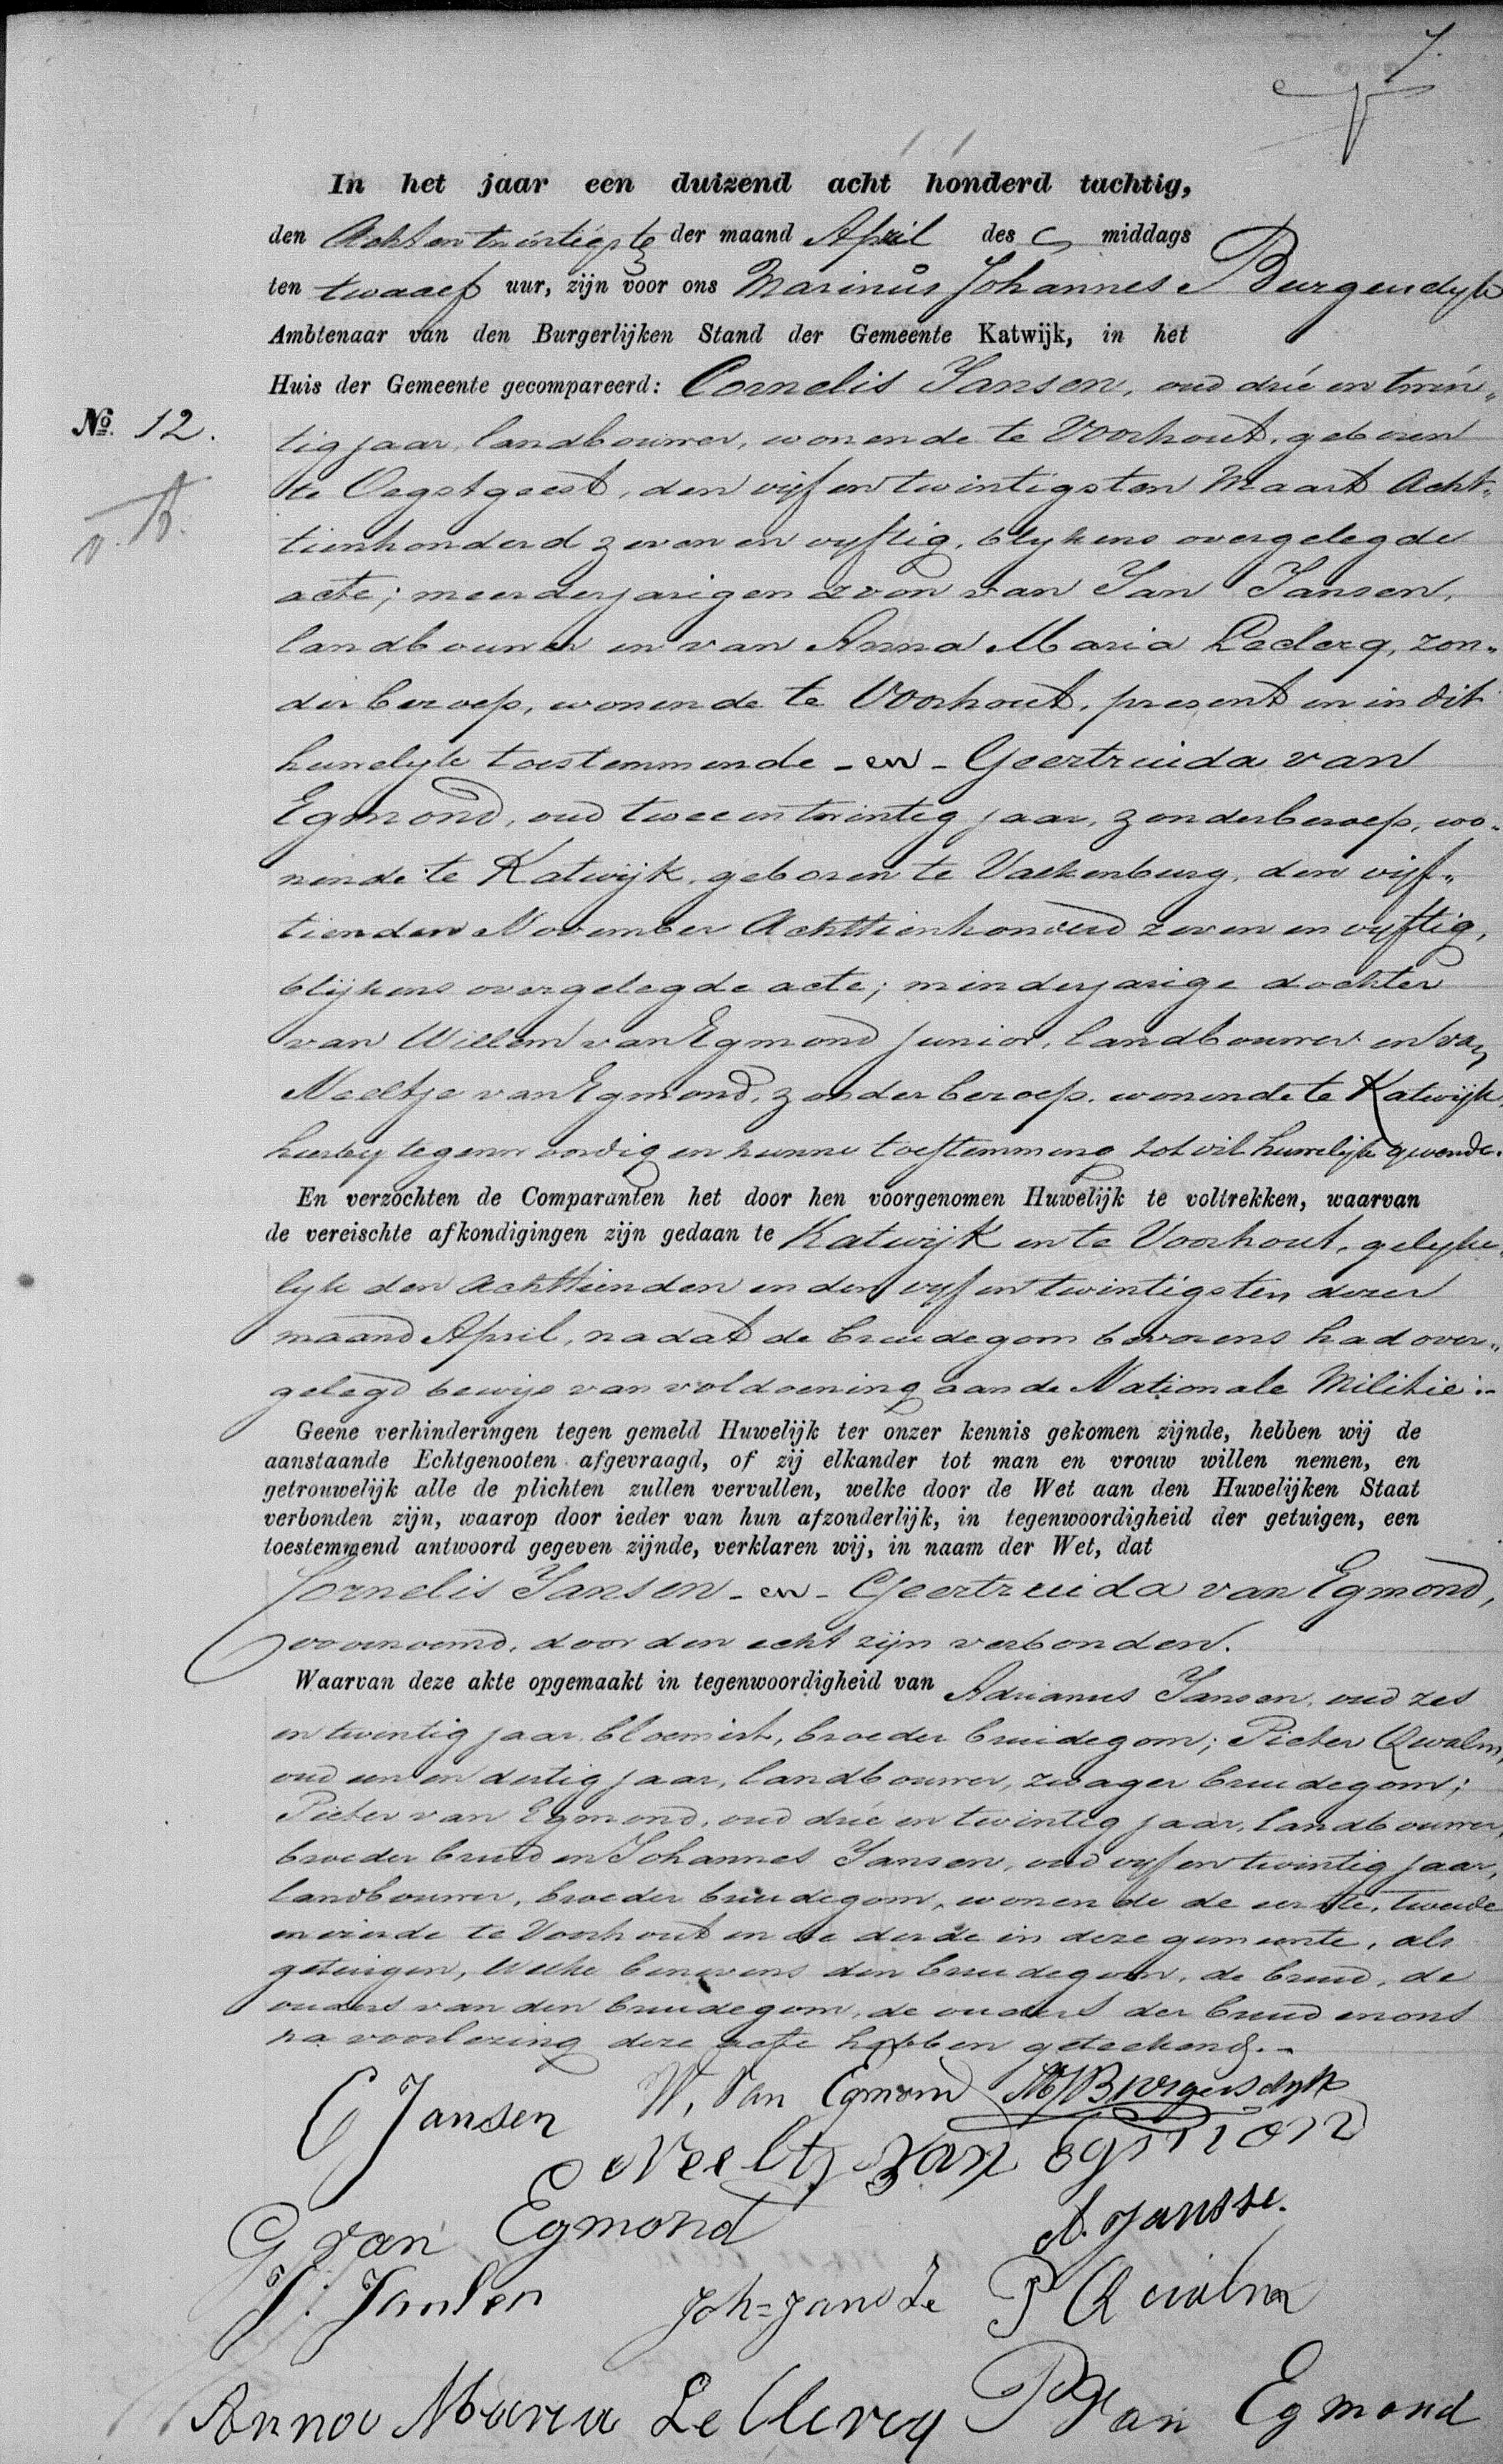 7.
In het jaar een duizend acht honderd tachtig,
den Achtentwintigste der maand April des middags
ten twaalf uur, zijn voor ons Marinus Johannes Burgersdyk
Ambtenaar van den Burgerlijken Stand der Gemeente Katwijk, in het
Huis der Gemeente gecompareerd: Cornelis Jansen, oud drie en twin-
No. 12. tig jaar, landbouwer, wonende te Voorhout, geboren
te Oegstgeest, den vijf en twintigsten Maart Acht-
tienhonderd zeven en vyftig, blykens overgelegde
acte; meerderjarigen zoon van Jan Jansen,
landbouwer en van Anna Maria Leclerq, zon-
der beroep, wonende te Voorhout, present en in dit
huwelyk toestemmende - en - Geertruida van
Egmond, oud twee en twintig jaar, zonder beroep, wo-
nende te Katwijk, geboren te Valkenburg, den vijf-
tienden November Achttienhonderd zeven en vyftig,
blijkens overgelegde acte; minderjarige dochter
van Willem van Egmond Junior, landbouwer en van
Neeltje van Egmond, zonder beroep, wonende te Katwijk,
hierby tegenwoordig en hunne toestemming tot dit huwelijk gevende.
En verzochten de Comparanten het door hen voorgenomen Huwelijk te voltrekken, waarvan
de vereischte afkondigingen zijn gedaan te Katwijk en te Voorhout, gelyke-
lyk den Achttienden en den vyf en twintigsten dezer
maand April, nadat de bruidegom bevorens had over-
gelegd bewijs van voldoening aan de Nationale Militie.-
Geene verhinderingen tegen gemeld Huwelijk ter onzer kennis gekomen zijnde, hebben wij de
aanstaande Echtgenooten afgevraagd, of zij elkander tot man en vrouw willen nemen, en
getrouwelijk alle de plichten zullen vervullen, welke door de Wet aan den Huwelijken Staat
verbonden zijn, waarop door ieder van hun afzonderlijk, in tegenwoordigheid der getuigen, een
toestemmend antwoord gegeven zijnde, verklaren wij, in naam der Wet, dat
Cornelis Jansen - en - Geertruida van Egmond,
voornoemd, door den echt zijn verbonden.
Waarvan deze akte opgemaakt in tegenwoordigheid van Adrianus Jansen, oud zes
en twintig jaar, bloemist, broeder bruidegom; Pieter Qualm,
oud een en dertig jaar, landbouwer, zwager bruidegom;
Pieter van Egmond, oud drie en twintig jaar, landbouwer,
broeder bruid en Johannes Jansen, oud vyf en twintig jaar,
landbouwer, broeder bruidegom, wonende de eerste, tweede
en vierde te Voorhout en de derde in deze gemeente, als
getuigen, Welke benevens den bruidegom, de bruid, de
ouders van den bruidegom, de ouders der bruid en ons
na voorlezing deze acte hebben geteekend.-
C Jansen W. Van Egmond MJBurgersdyk
Neeltje van Egmon
G van Egmond A. Jansse.
J. Jansen Joh= Jansse P Qualm
Anna Maria Le Clercq P Van Egmond